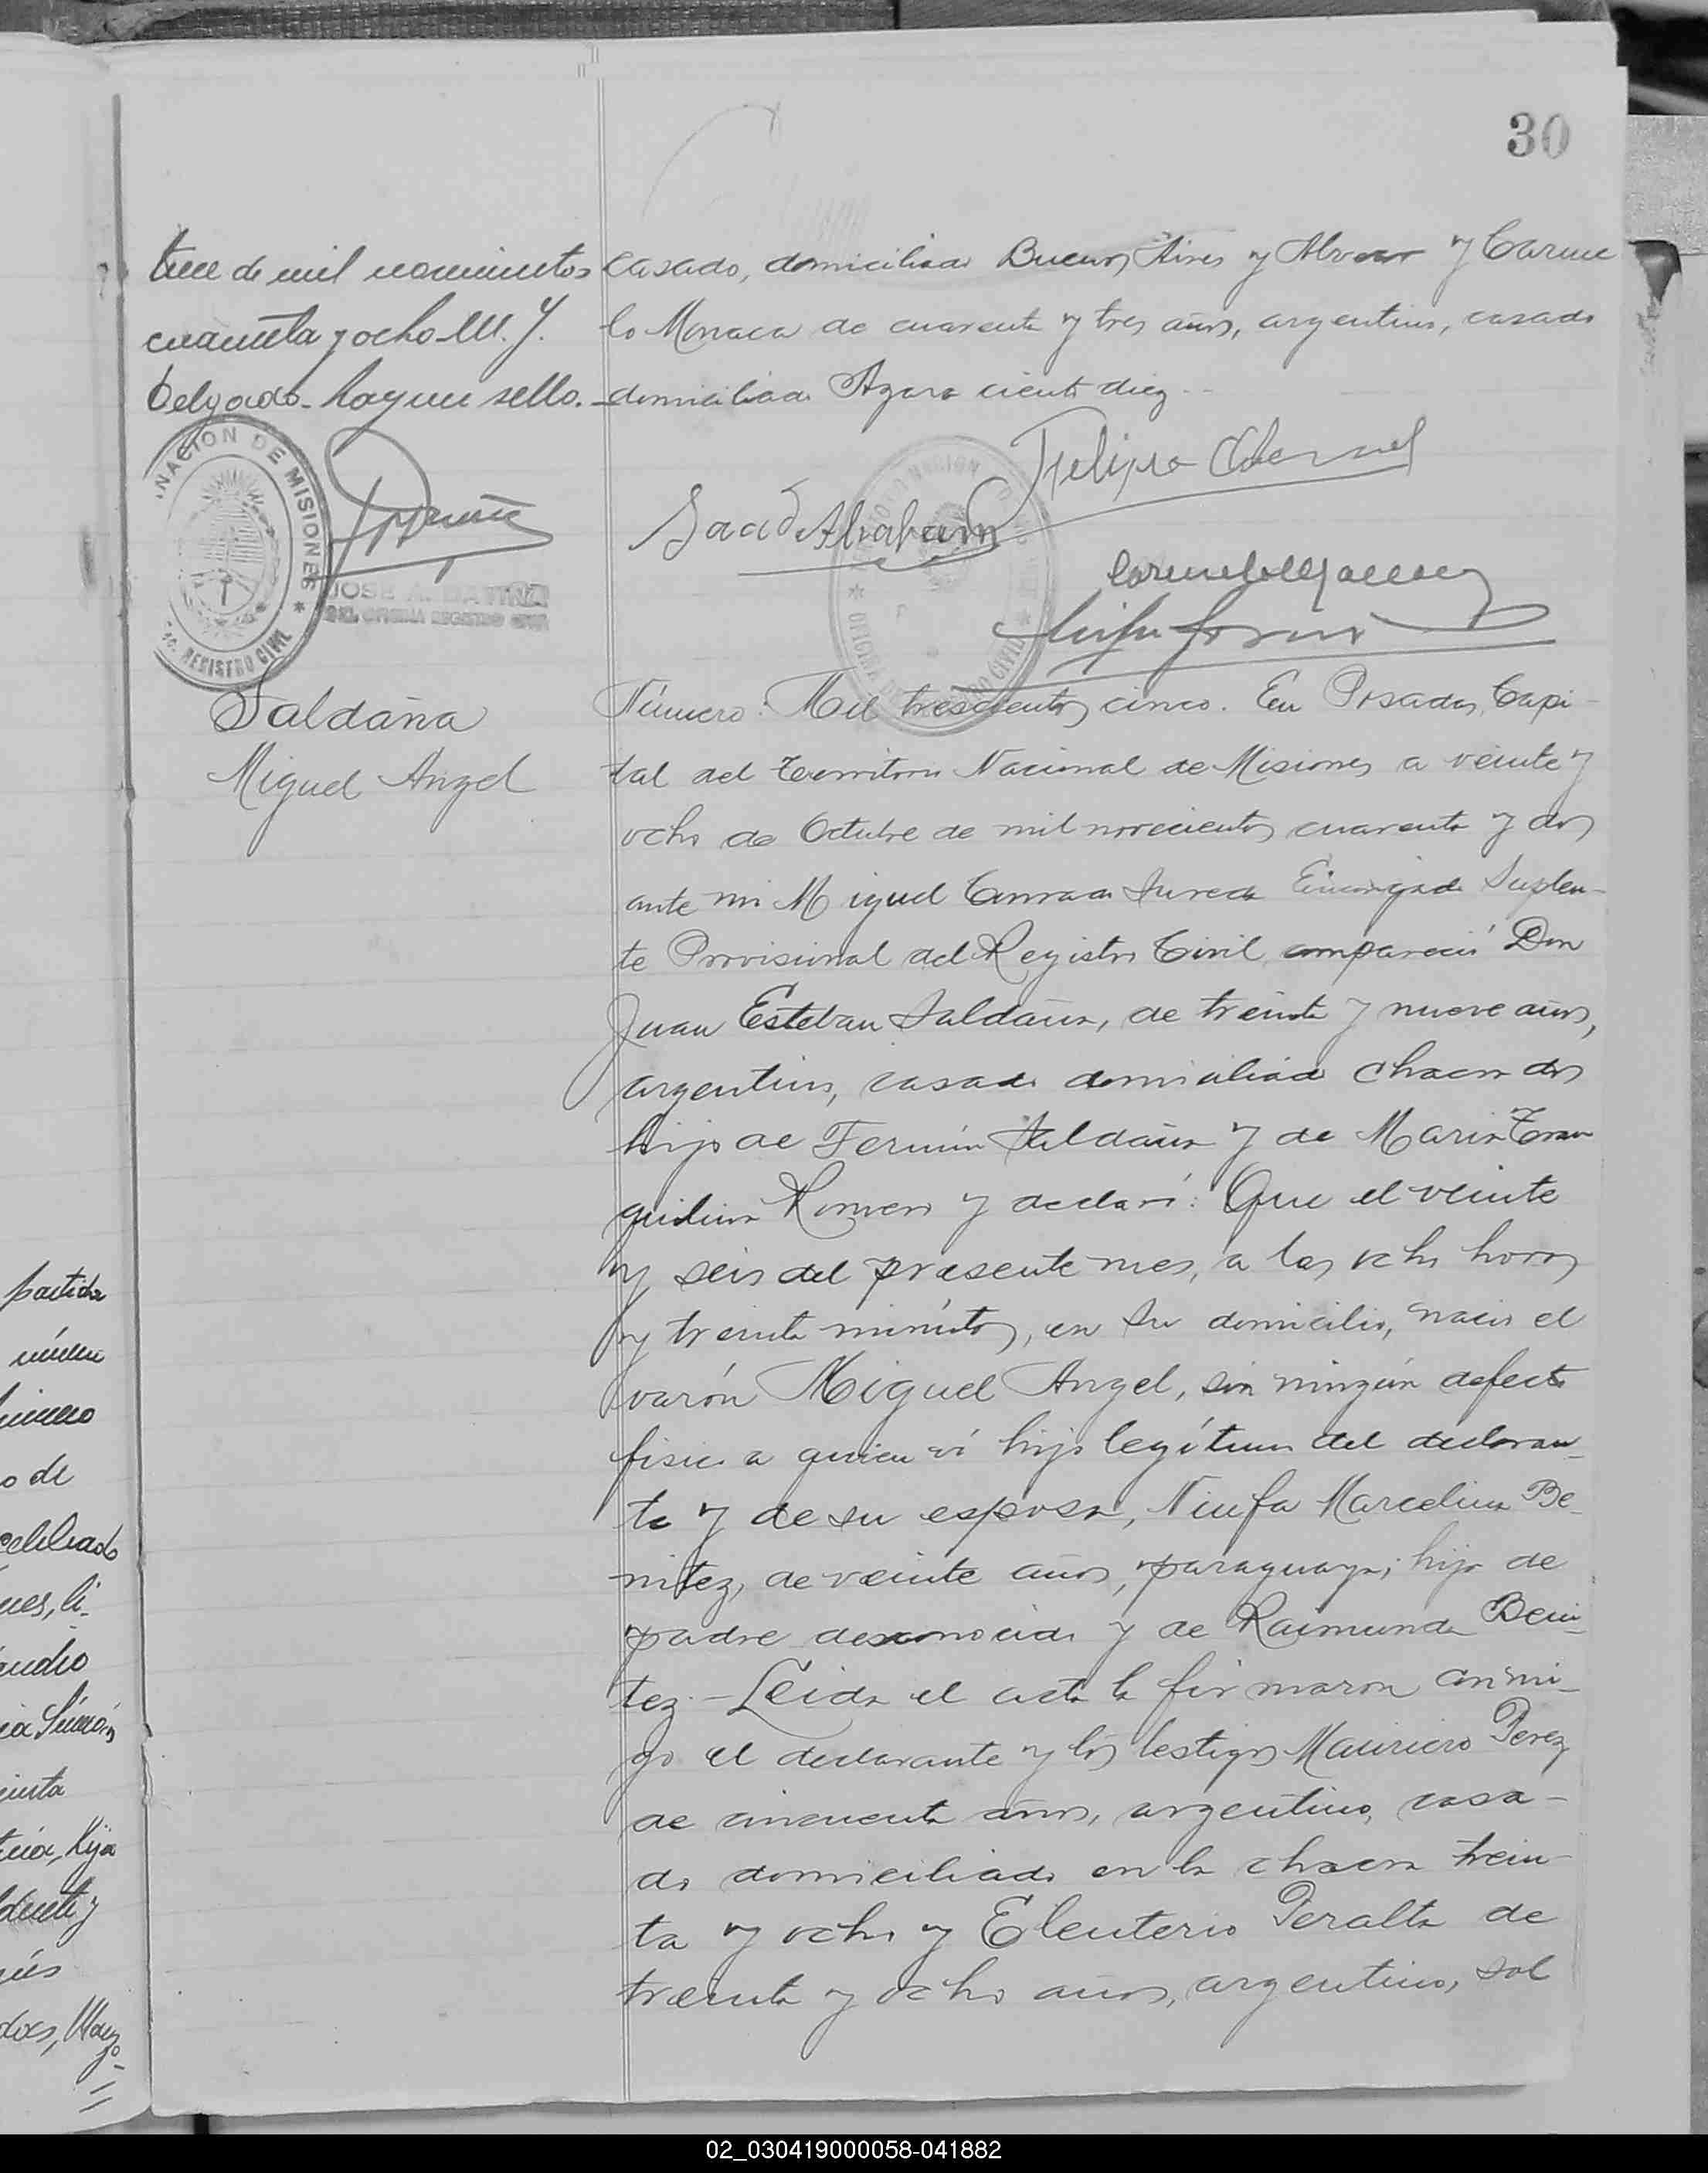 30
trece de mil novecientos
cuarenta y ocho. M. J.
Delgado. hay un sello.
NACION DE MISIONES
REGISTRO CIVIL
JOSE A.
DEL OFICINA REGISTRO CIVIL
casado, domiciliado Buenos Aires y Alvear y Carme
lo Monaca de cuarenta y tres años, argentino, casado
domiciliado Azara ciento diez.
Felipe
Saad Abraham
OFICINA DE REGISTRO CIVIL
Saldaña
Miguel Angel
Número: Mil trescientos cinco. En Posadas, Capi-
tal del Territorio Nacional de Misiones a veinte y
ocho de Octubre de mil novecientos cuarenta y dos
ante mi Miguel Conrado Sureda Encargado Suplen-
te Provisional del Registro Civil, compareció Don
Juan Esteban Saldaña, de treinta y nueve años,
argentino, casado domiciliado chacra dos
hijo de Fermín Saldaña y de Maria Tran
quilina Romero y declaró: Que el veinte
y seis del presente mes, a las ocho horas
y treinta minutos, en su domicilio, nació el
varón Miguel Angel, sin ningún defecto
fisico a quien ví hijo legítimo del declaran-
te y de su esposa, Ninfa Marcelina Be-
nitez, de veinte años, paraguaya; hija de
padre desconocido y de Raimunda Beni-
tez.- Leida el acta la firmaron conmi-
go el declarante y los testigos Mauricio Perez
de cincuenta años, argentino, casa-
do domiciliado en la chacra trein-
ta y ocho y Eleuterio Peralta de
treinta y ocho años, argentino, sol
partida
número
o de
celebrado
nes, li-
ia Simón
hija
02_030419000058-041882